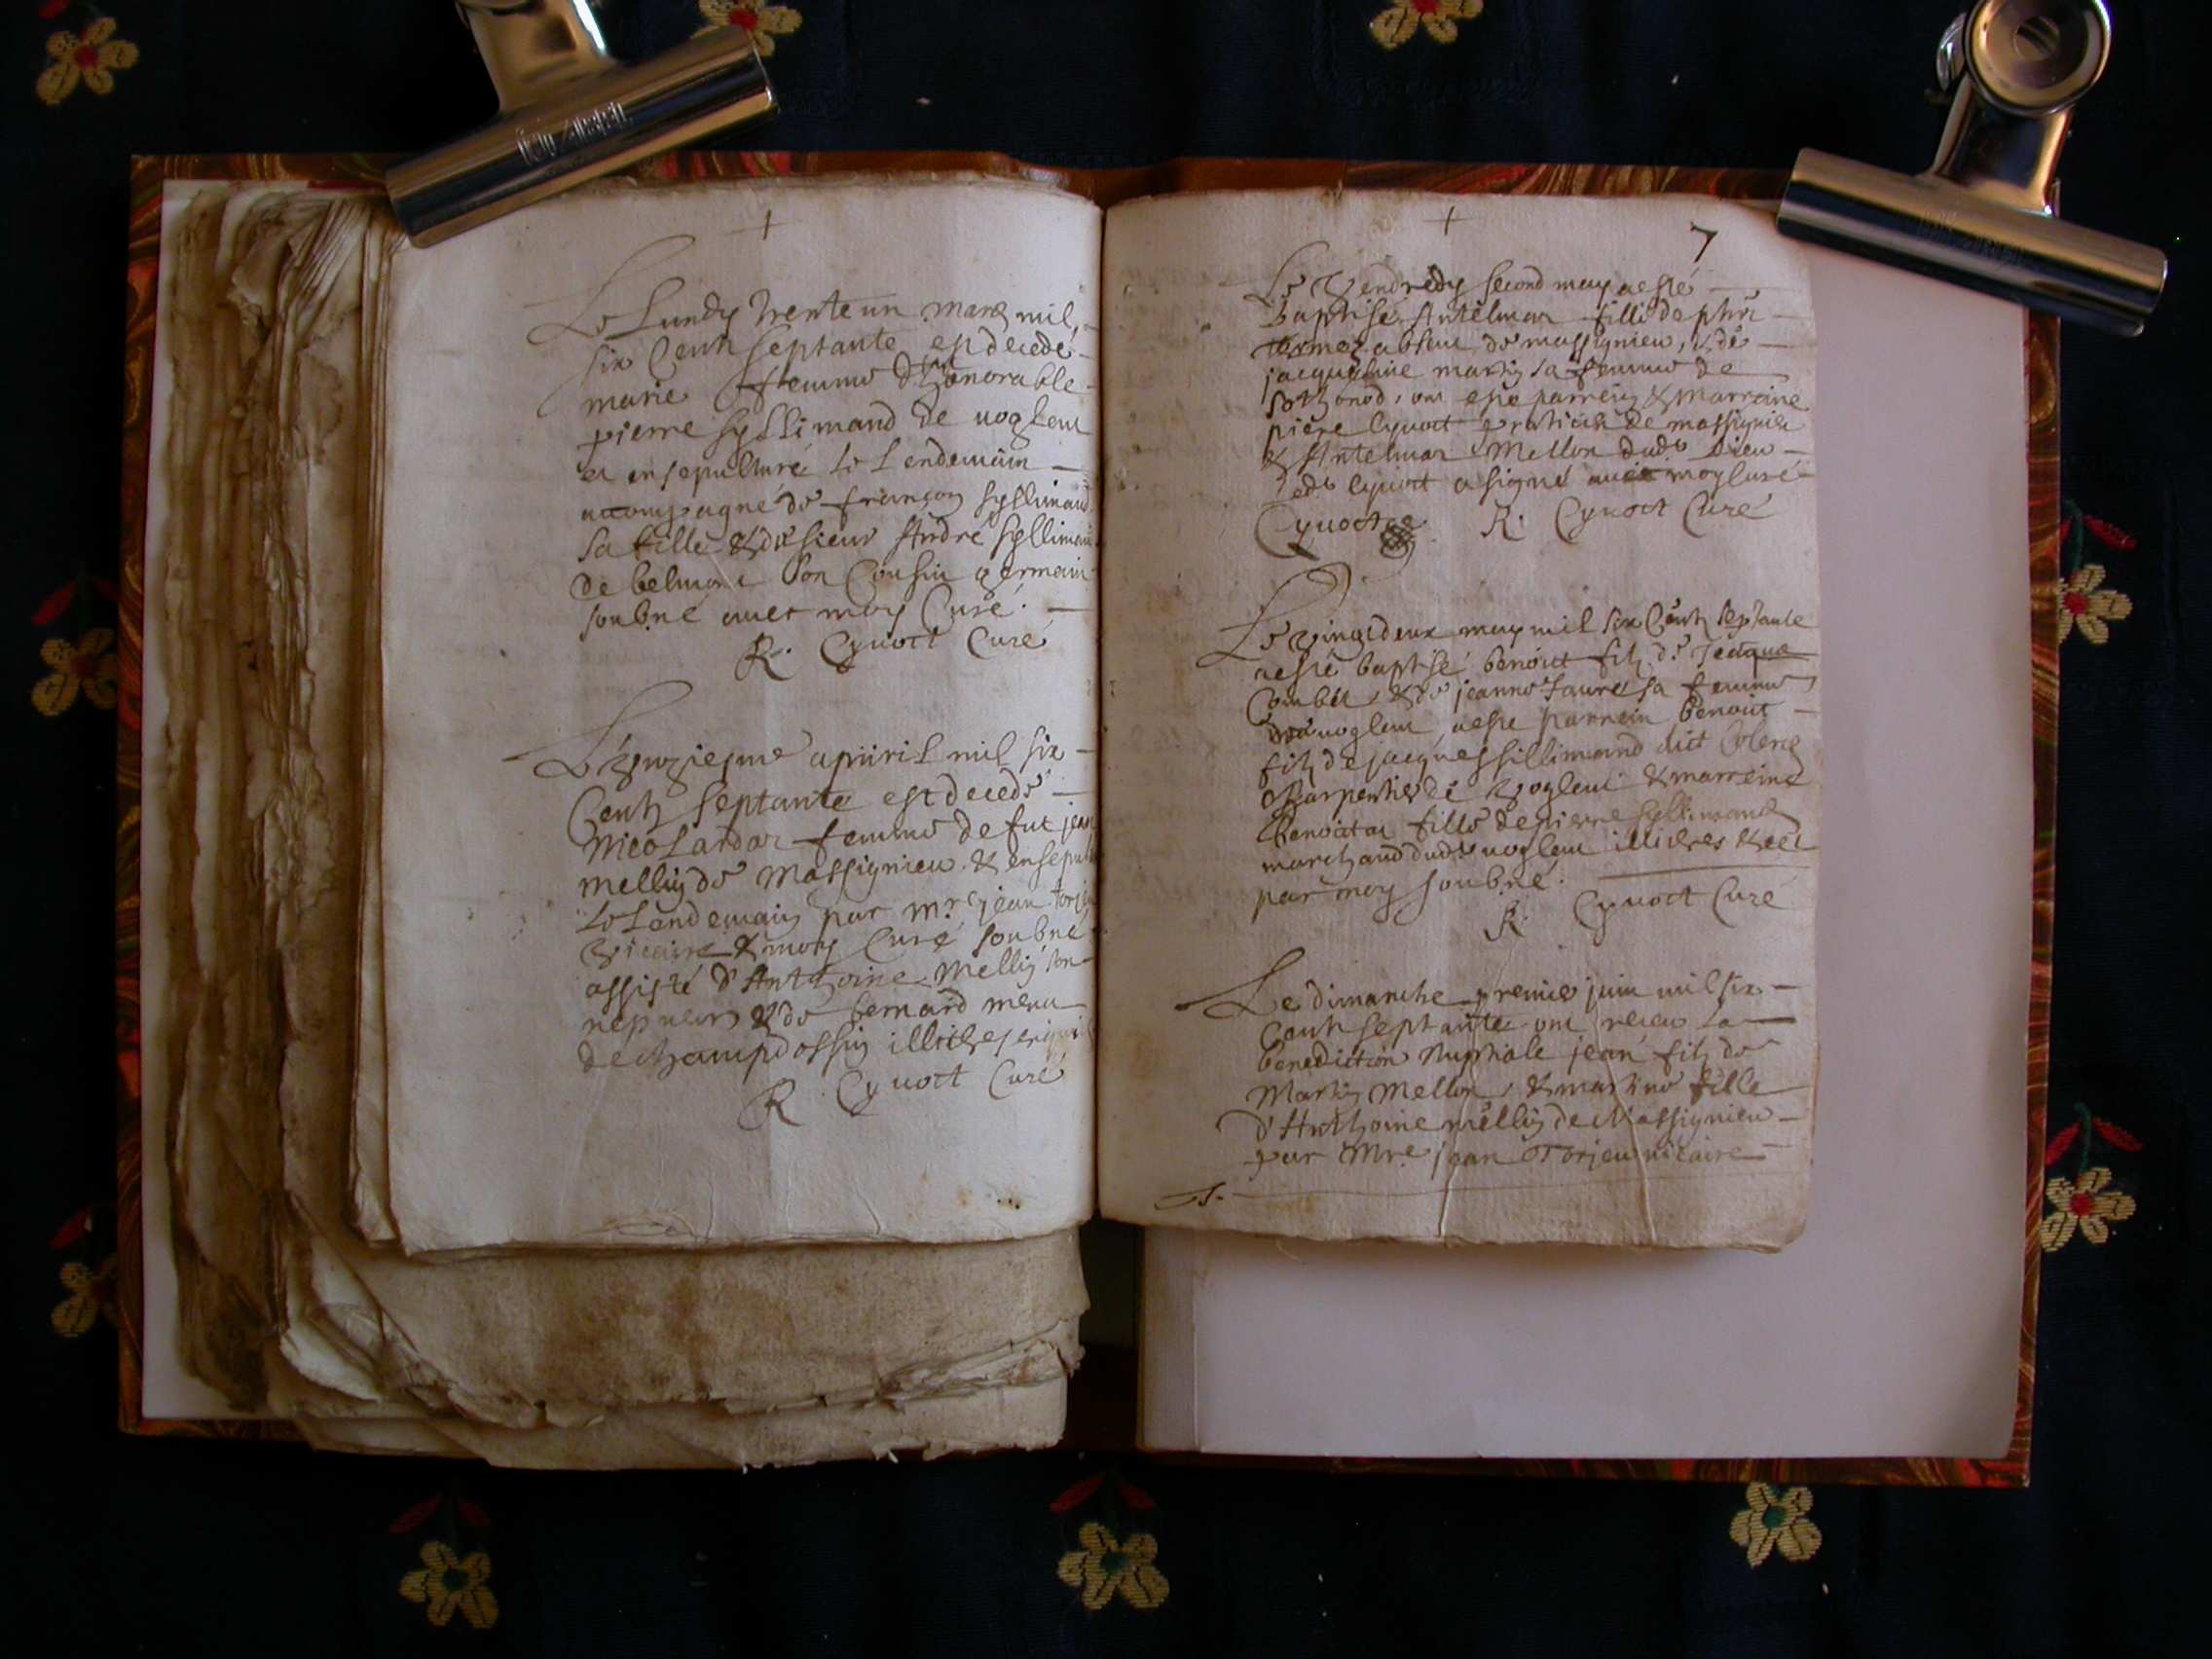 +
Le Lundy trente un mars mil
six Centz septante est decedé
marie femme d'honorable
pierre syllimand de uogleut
et ensepulture Le Lendemain
accompagné de françoy syllimand
sa fille & de sieur André syllimand
de belmont son Cousin germain
soubné auec moy Curé.
R. Cyuoct Curé
Le apuril mil six
Centz septante est decedé
Nicolardar femme de fut jean
melliy de Massignieu & ensepul
Le Landemaiy par mre jean torjeu
vicaire & moy Curé soubné
assisté d'Anthoine Melliy son
nepueu & de bernard menu
de champdossiy illitheres
R. Cyuoct Curé
+
7
Le Vendredy second may a esté
baptisé Antelmar fille de
absent de massignieu, & de
jacqueline martiy sa femme de
sothonod, ont esté parreiy & marraine
piere Cyuoct praticien de massignieu
& Antelmar Mellon dudt Lieu
Ledt Cyuoct a signé auec moy Curé
Cyuoct R. Cyuoct Curé
Le vingtdeux may mil six Centz septante
a esté baptisé benoict filz de Jacque
Combet & de jeanne faure sa femme
de uogleut, a esté parrein benoit
filz de jacques sillimand dict
Charpentier de vogleut & marreine
benoictar fille de pierre syllimand
marchand dudt uogleut illitheres
par moy soubné.
R. Cyuoct Curé
Le dimanche premier juin mil six
Centz septante ont receu La
benediction Nuptiale jean filz de
Martiy Mellon, & martine fille
d'Anthoine melliy de Massignieu
par Mre jean Torjeu vicaire